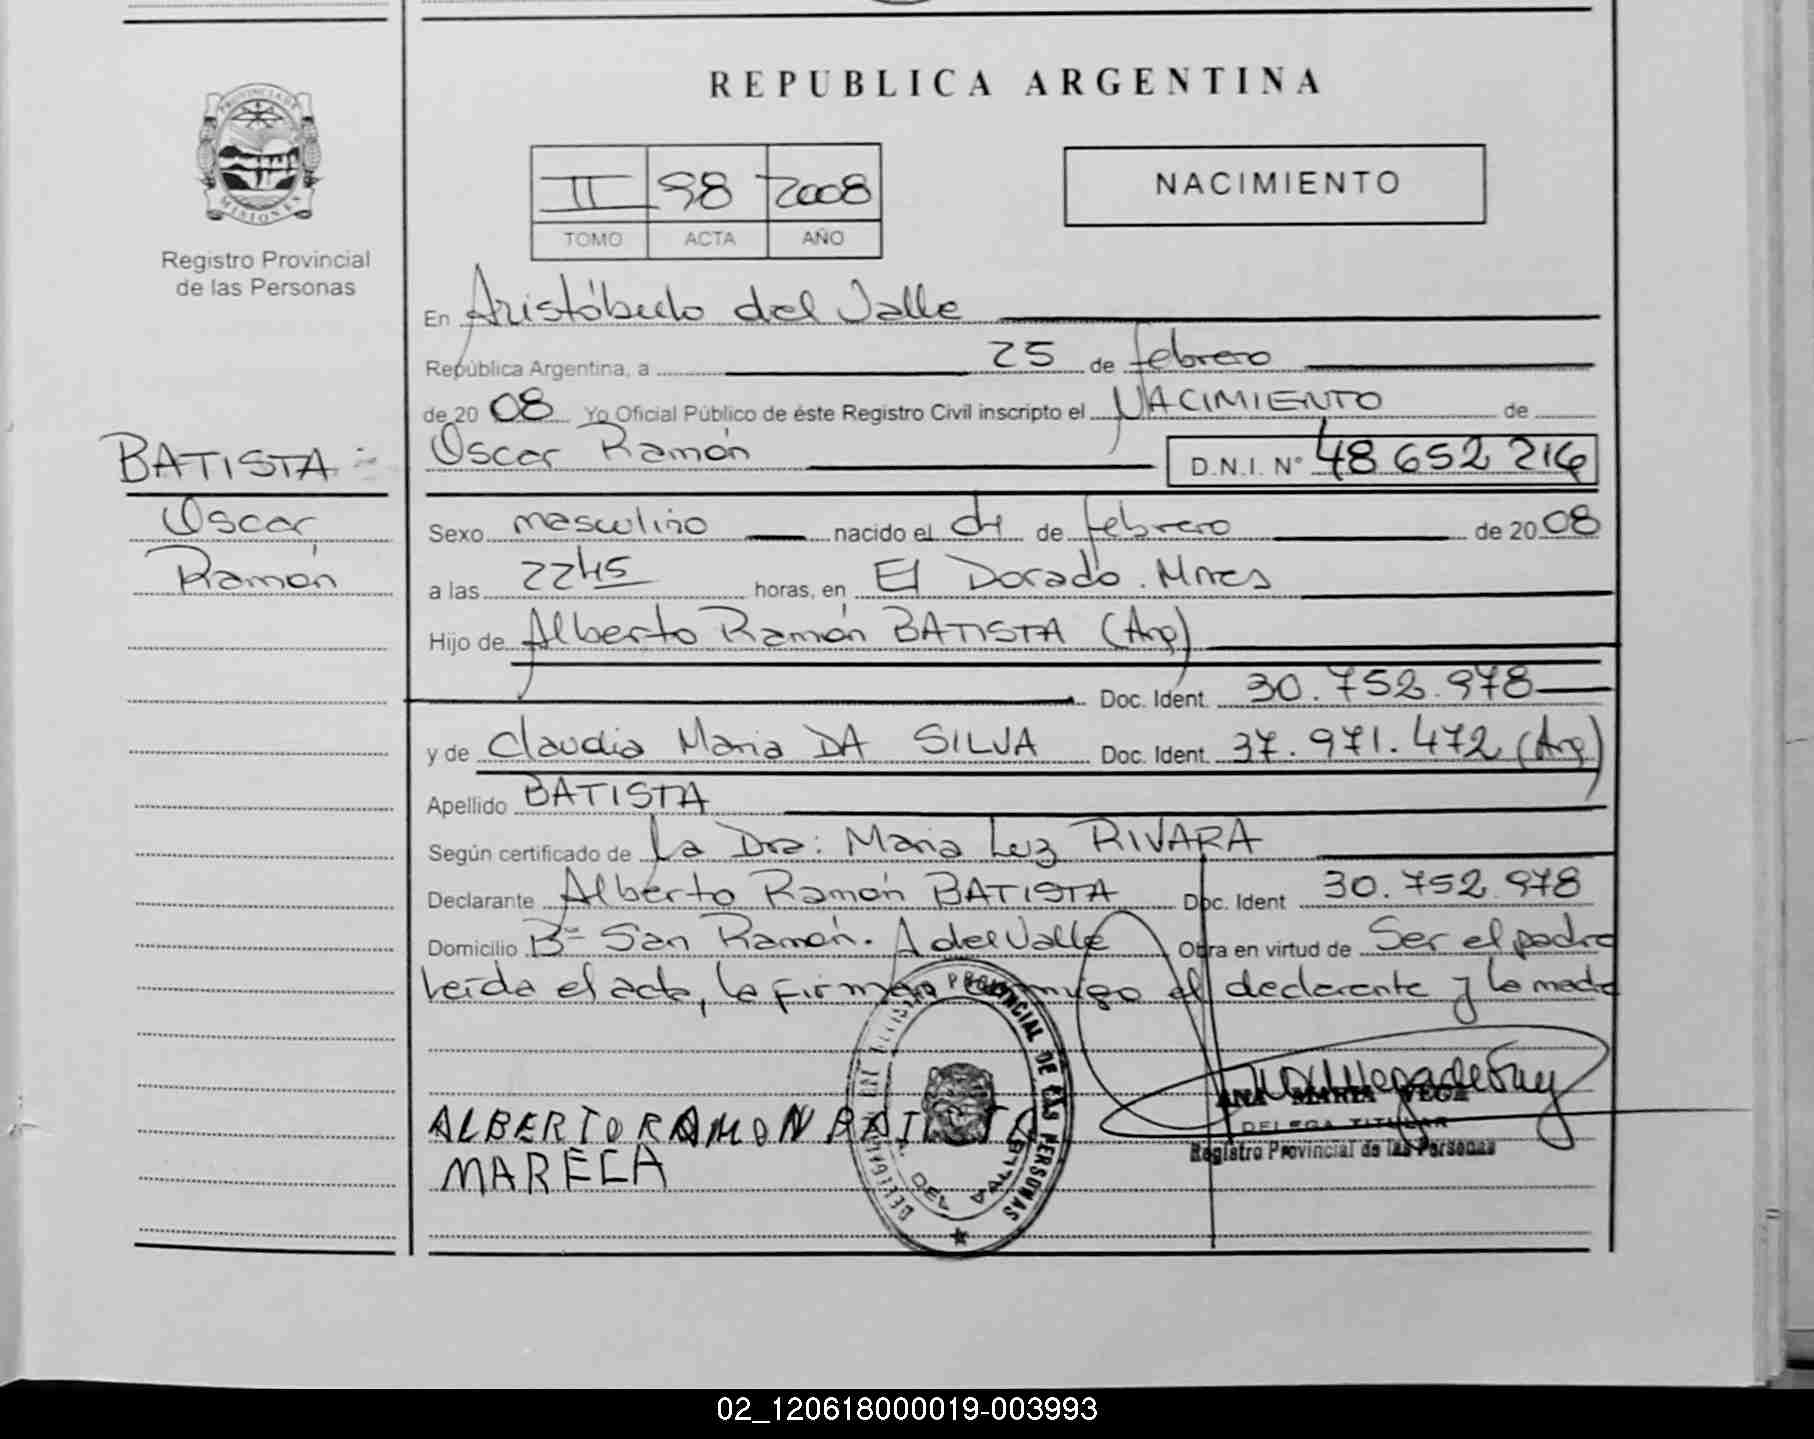 PROVINCIA DE
MISIONES
Registro Provincial
de las Personas
BATISTA
Oscar
Ramón
REPUBLICA ARGENTINA
II 98 2008
TOMO ACTA AÑO
NACIMIENTO
En Aristóbulo del Valle
República Argentina, a 25 de febrero
de 20 08 Yo Oficial Público de éste Registro Civil inscripto el NACIMIENTO de
Oscar Ramón D.N.I. N° 48 652 216
Sexo masculino nacido el 04 de febrero de 20 08
a las 2245 horas, en El Dorado. Mnes
Hijo de Alberto Ramón BATISTA (Arg)
Doc. Ident. 30.752.978
y de Claudia Maria DA SILVA Doc. Ident. 37.971.472 (Arg)
Apellido BATISTA
Según certificado de La Dra: Maria Luz RIVARA
Declarante Alberto Ramón BATISTA Doc. Ident 30.752.978
Domicilio Bº San Ramón. A del Valle Obra en virtud de Ser el padre
Leída el acta, la firman conmigo el declarante y la madre
ALBERTO RAMON BATISTA
MARECA
PROVINCIAL DE LAS PERSONAS
DEL VALLE
ANA MARIA VEGA
DELEGA TITULAR
Registro Provincial de las Personas
02_120618000019-003993